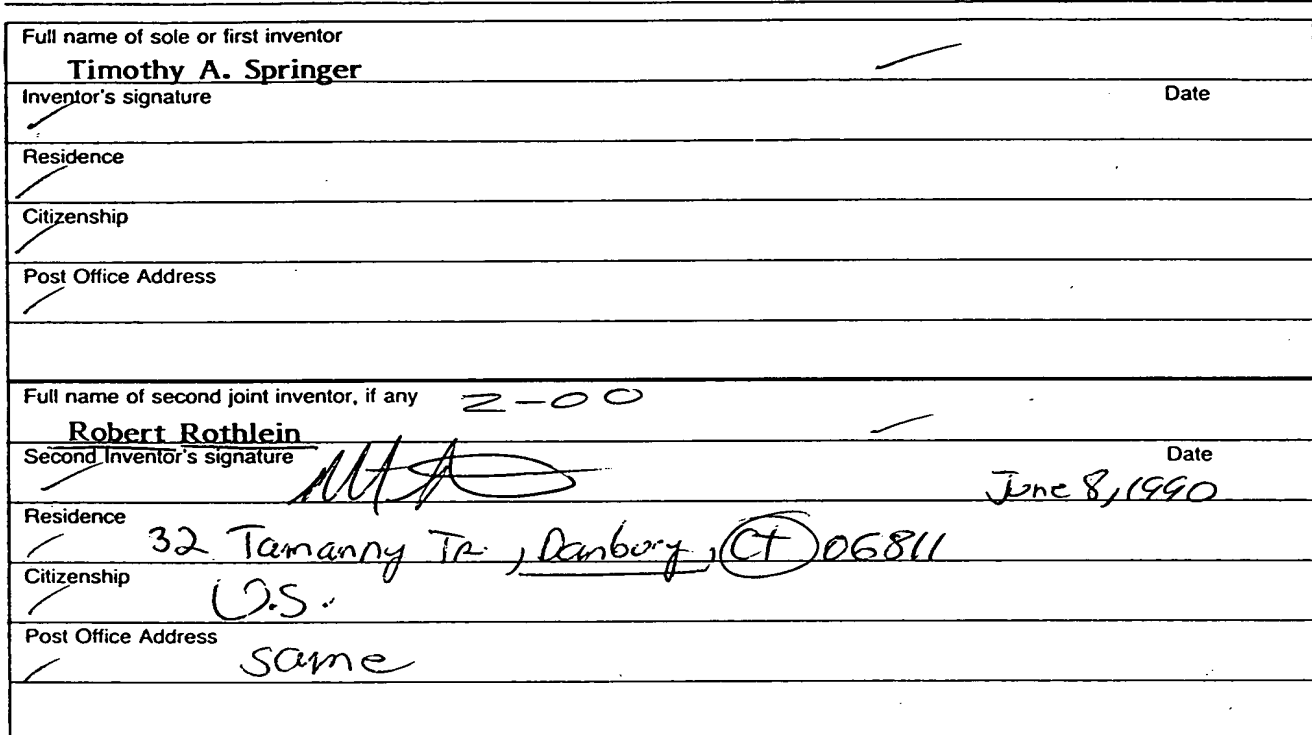 Full name of sole or first inventor
Timothy A. Springer
Inventor's signature Date
Residence
Citizenship
Post Office Address
Full name of second joint inventor, if any 2-00
Robert Rothlein
Second Inventor's signature Date
June 8, 1990
Residence 32 Tamanny Tr., Danbury, CT 06811
Citizenship U.S.
Post Office Address same